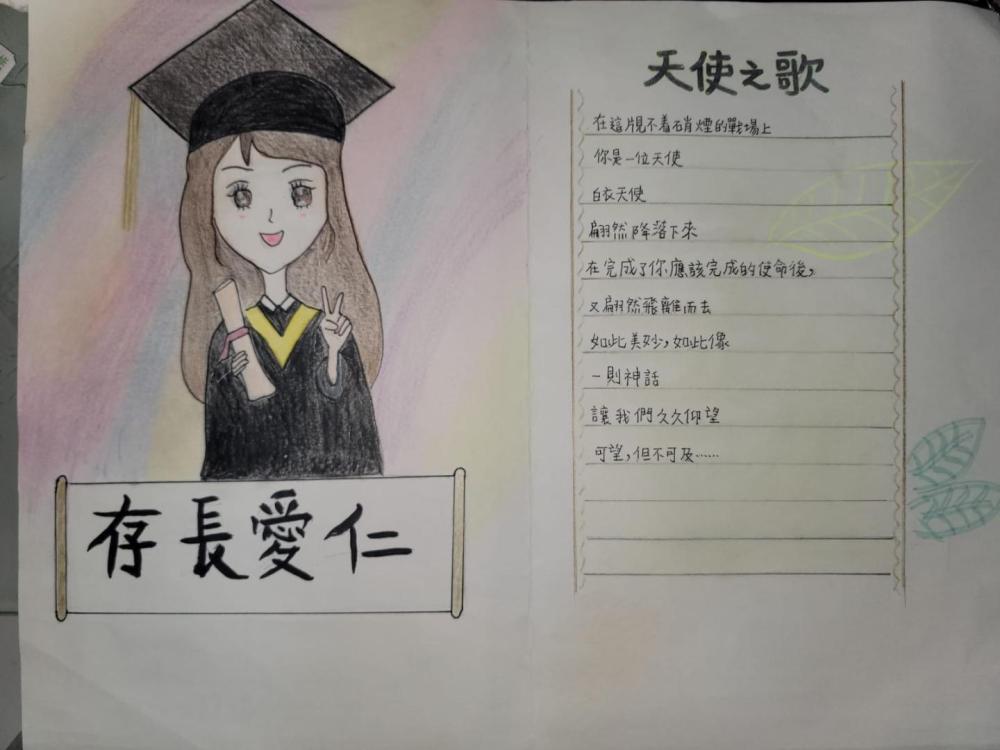 存長愛仁
天使之歌
在這片視不着硝煙的戰場上
你是一位天使
白衣天使
翩然降落下來
在完成了你應該完成的使命後,
又翩然飛離而去
如此美妙,如此像
一則神話
讓我們久久仰望
可望,但不可及……